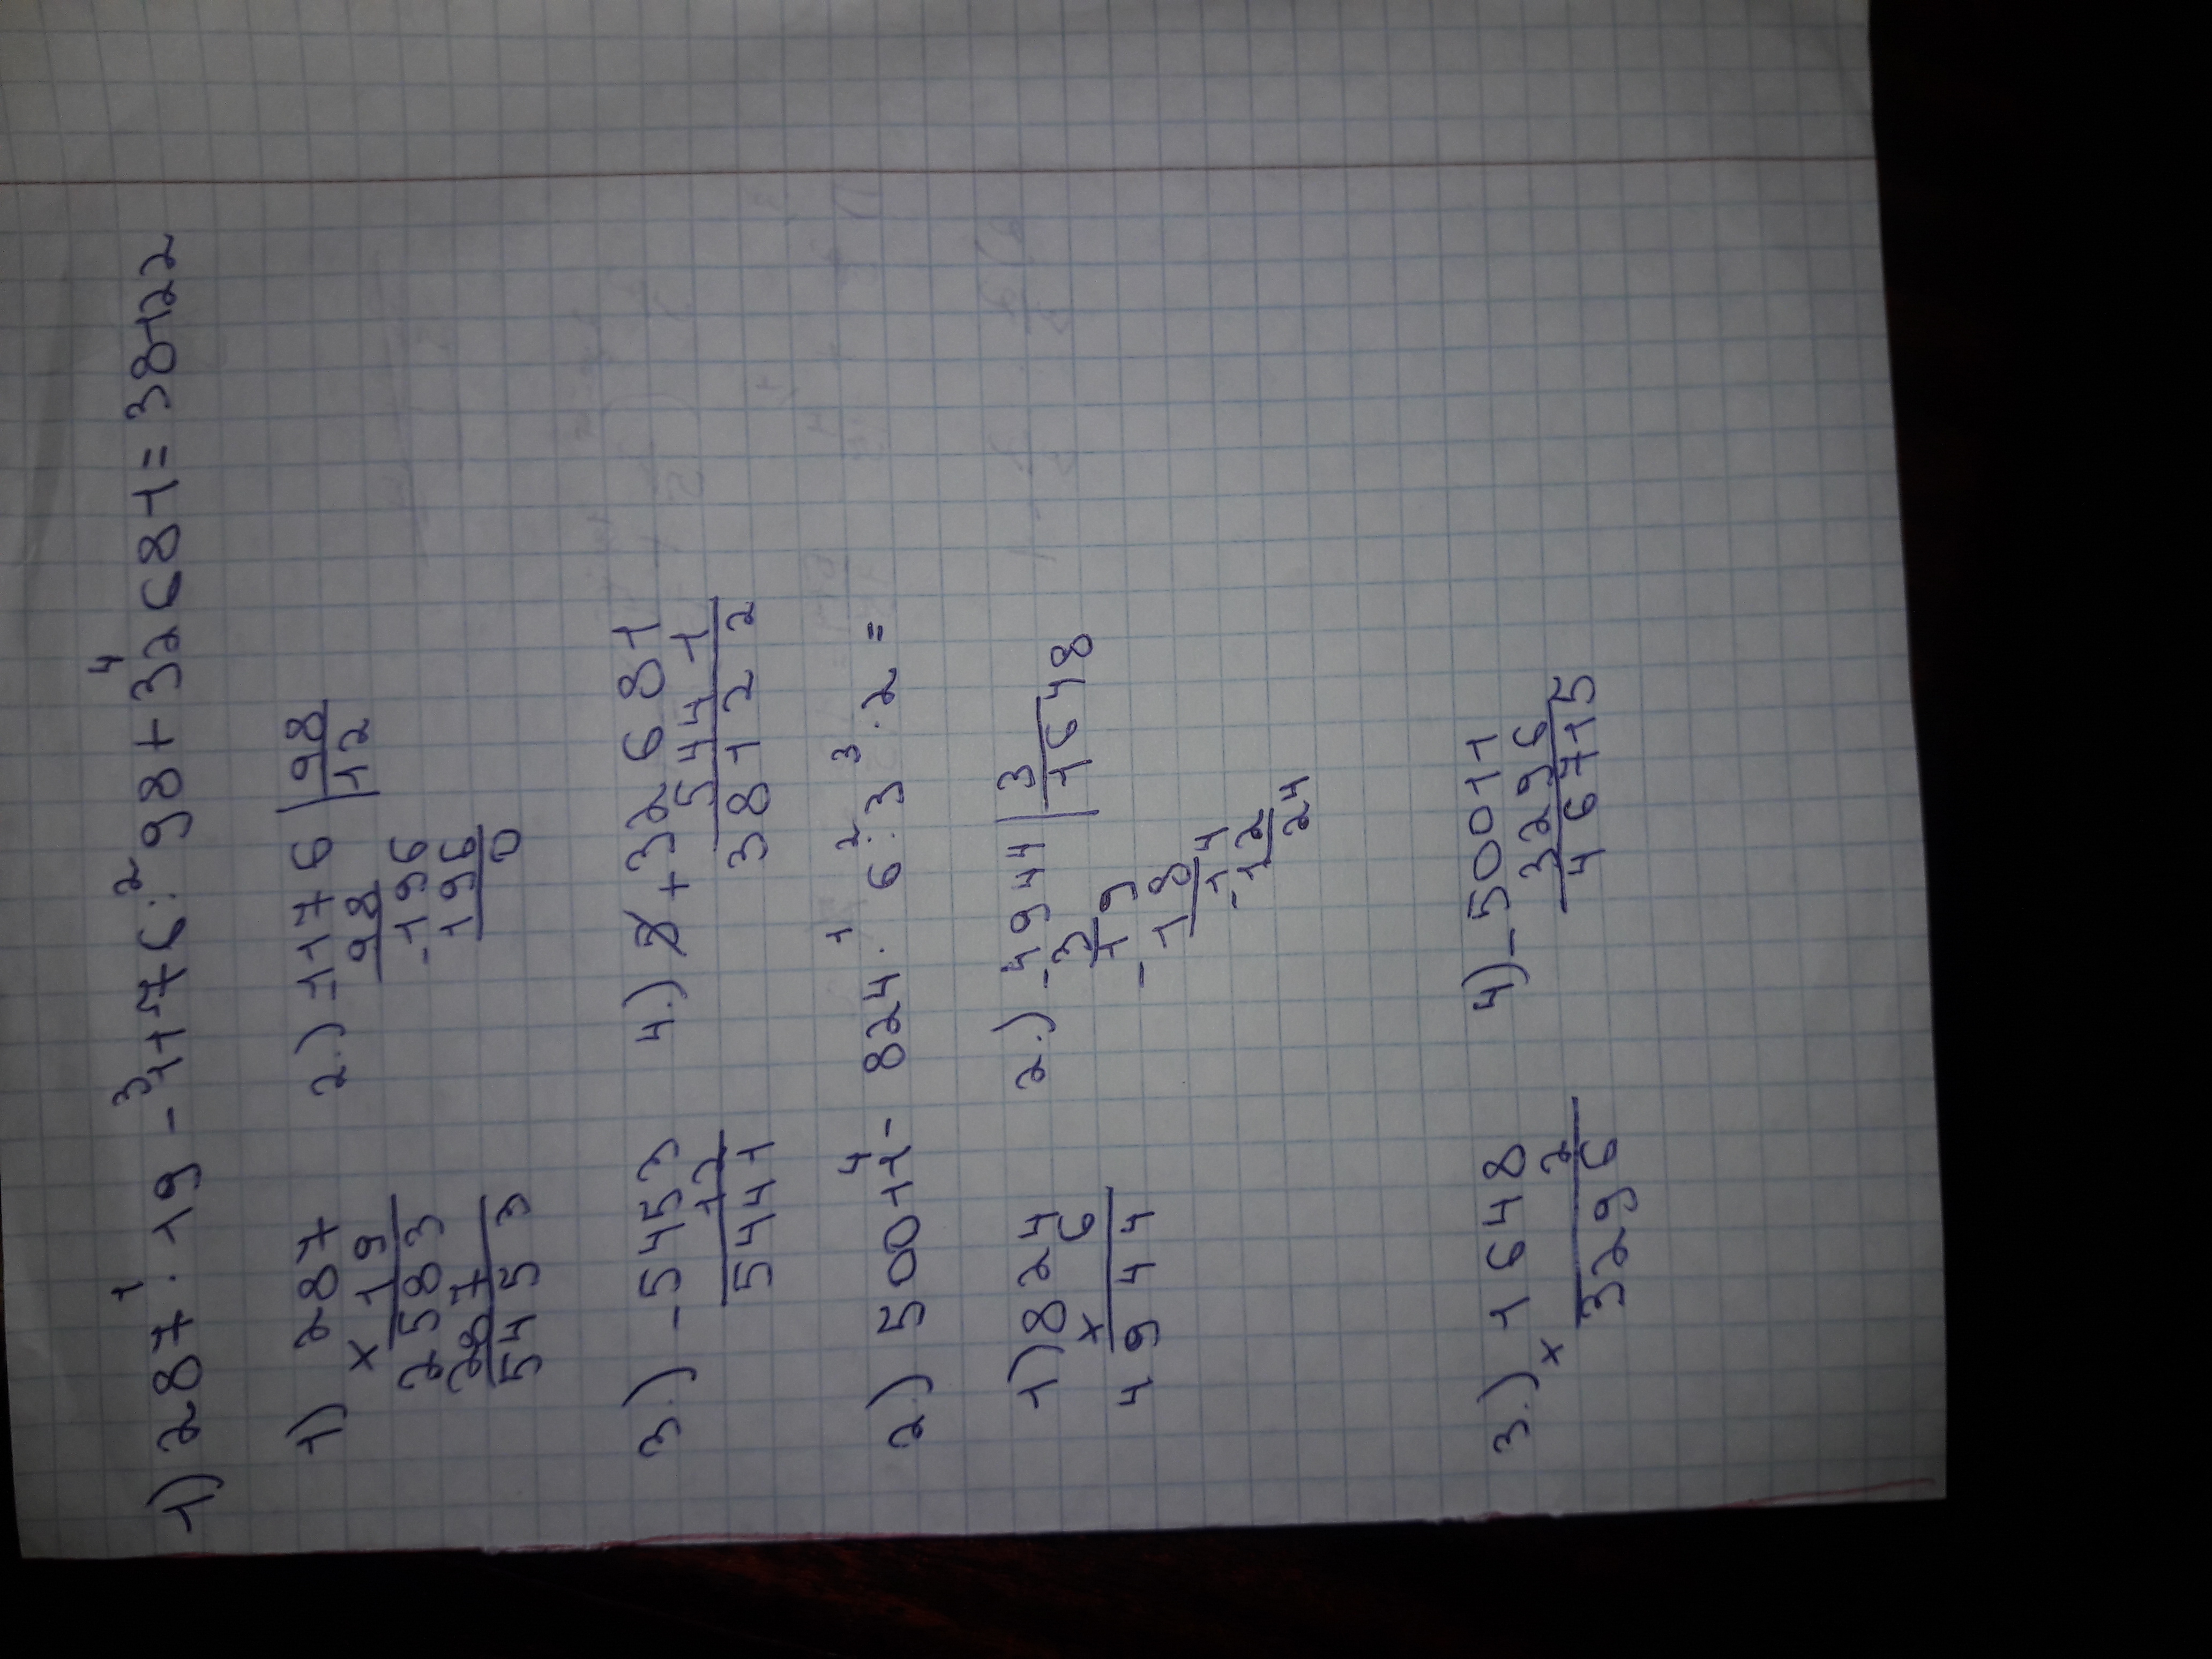 1) 287 · 19 - 1176 : 98 + 32681 = 38122
1 3 2 4
1) 287
× 19
2583
287
5453
2.) -1176 | 98
98 12
-196
196
0
3.) -5453
12
5441
4.) + 32681
5441
38122
2.) 50011 - 824 · 6 : 3 · 2 =
4 1 2 3
1) 824
× 6
4944
2.) -4944 | 3
3 1648
-19
18
-14
12
24
3.) 1648
× 2
3296
4) -50011
3296
46715